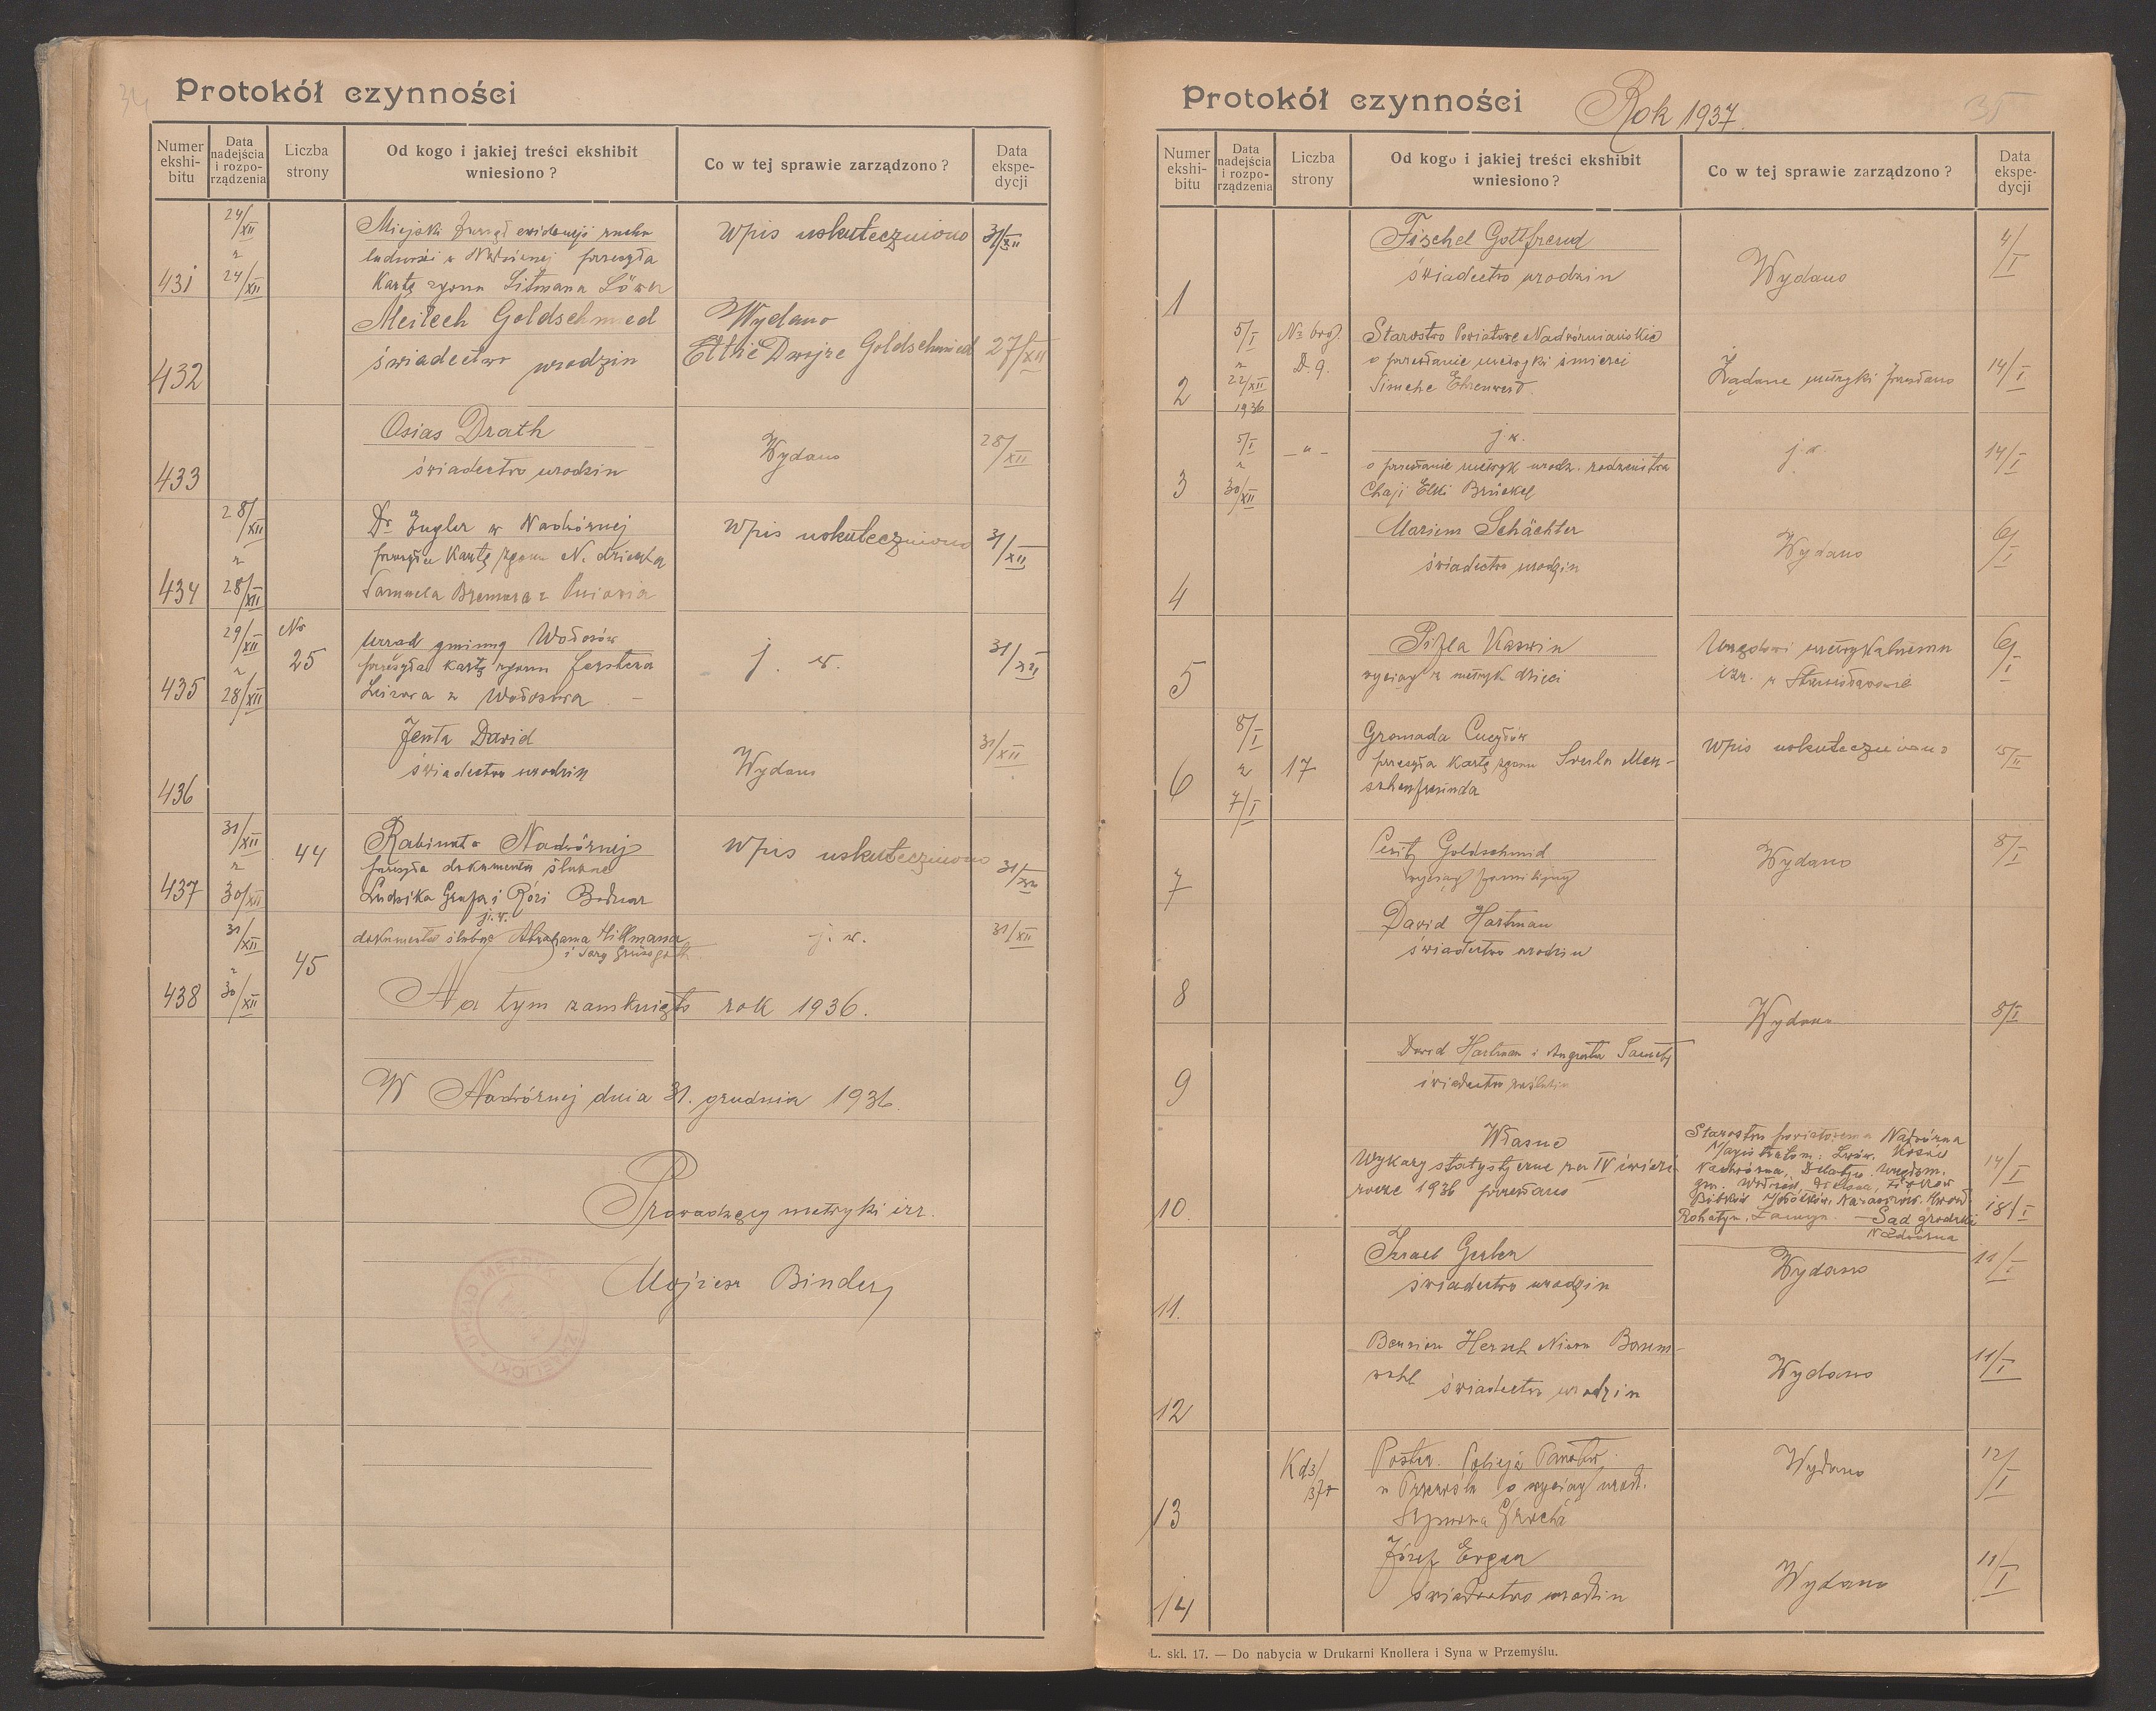 34
Protokół czynności
Numer ekshi-bitu
Data nadejścia i rozpo-rządzenia
Liczba strony
Od kogo i jakiej treści ekshibit wniesiono?
Co w tej sprawie zarządzono?
Data ekspe-dycji
431
24/XII
z
24/XII
Miejski
ludności w
przesyła
Kartę zgonu Litmana Löwa
Wpis uskuteczniono
31/XII
432
Meilech Goldschmied
świadectwo urodzin
Wydano
Ettie Dwojze Goldschmied
27/XII
433
Osias Drath
świadectwo urodzin
Wydano
28/XII
434
28/XII
z
28/XII
Dr Engler w Nadwórnej
przesyła Kartę zgonu N. dziecka
Samuela
Wpis uskuteczniono
31/XII
435
29/XII
z
28/XII
No
25
Urząd gminny Wołosów
przesyła kartę zgonu Ferstera
z Wołosowa
j. w.
31/XII
436
Jenta David
świadectwo urodzin
Wydano
31/XII
437
31/XII
z
30/XII
44
Rabinat w Nadwórnej
przesyła dokumenta ślubne
Ludwika Grafa i Róży Bodnar
Wpis uskuteczniono
31/XII
438
31/XII
z
30/XII
45
j. w.
dokumenta ślubne Abrahama Hillmana
i Sary
j. w.
31/XII
Na tym zamknięto rok 1936.
W Nadwórnej dnia 31. grudnia 1936.
Prowadzący metryki izr.
Mojżesz Binder
URZĄD METRYK IZRAELICKI
Protokół czynności
Rok 1937.
35
Numer ekshi-bitu
Data nadejścia i rozpo-rządzenia
Liczba strony
Od kogo i jakiej treści ekshibit wniesiono?
Co w tej sprawie zarządzono?
Data ekspe-dycji
1
Fischel Gottfreud
świadectwo urodzin
Wydano
4/I
2
5/I
z
22/XII
1936
D. 9.
Starostwo Powiatowe Nadwórniańskie
o przesłanie metryki śmierci
Simche Ehrenwerd
Żądane metryki przesłano
14/I
3
5/I
z
30/XII
- " -
j. w.
o przesłanie metryk urodz. rodzeństwa
Chaji Elki Brückel
j. w.
14/I
4
Mariem Schächter
świadectwo urodzin
Wydano
6/I
5
Kaswin
wyciąg z metryk dzieci
Urzędowi metrykalnemu
izr. w Stanisławowie
6/I
6
8/I
z
7/I
17
Gromada Cucyłów
przesyła kartę zgonu Men-
schenfreunda
Wpis uskuteczniono
15/II
7
Peritz Goldschmid
wyciąg familijny
Wydano
8/I
8
David Hartman
świadectwo urodzin
Wydano
8/I
9
David Hartman i Augusta
świadectwo zaślubin
10
Własne
Wykazy statystyczne za IV ćwierć-
rocze 1936 przesłano
Starostwu powiatowemu Nadwórna
Magistratom: Lwów, Kosów
Nadwórna, Delatyn
Rohatyn, - Sąd grodzki
Nadwórna
14/I
18/I
11.
Izrael Gerber
świadectwo urodzin
Wydano
11/I
12
Benzion Hersch Nison Baum-
wohl świadectwo urodzin
Wydano
11/I
13
Kd3/
37
Poster. Policji Państw.
w o wyciąg urodz.
Wydano
12/I
14
Józef Erger
świadectwo urodzin
Wydano
11/I
L. skł. 17. — Do nabycia w Drukarni Knollera i Syna w Przemyślu.